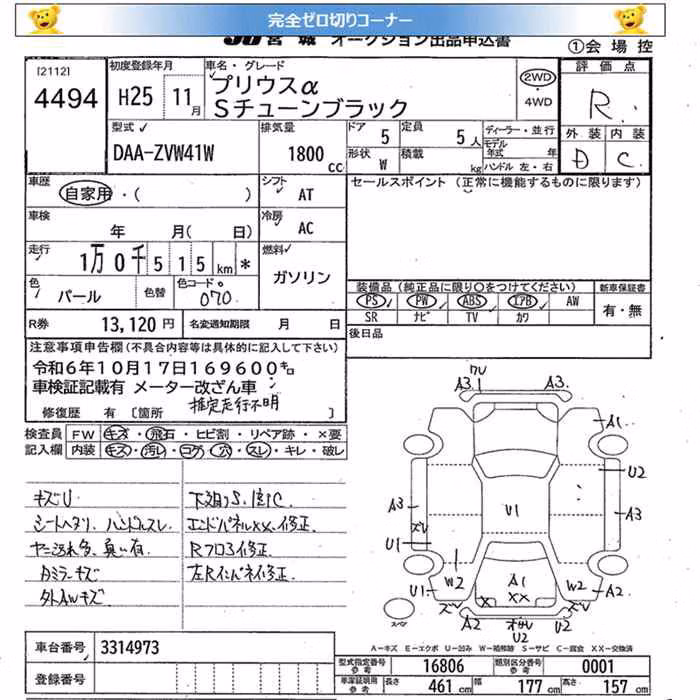 完全ゼロ切りコーナー
JU宮城 オークション出品申込書
①会場控
[2112]
4494
初度登録年月
H25 11月
車名・グレード
プリウスα
Sチューンブラック
2WD
・
4WD
評価点
R
外装 内装
D C
型式
DAA-ZVW41W
排気量
1800cc
ドア 5
定員 5人
形状 W
積載 kg
ディーラー・並行
モデル年式 年
ハンドル 左・右
車歴
自家用・( )
シフト
AT
セールスポイント (正常に機能するものに限ります)
車検
年 月( 日)
冷房
AC
走行
1万0千515km *
燃料
ガソリン
色
パール
色替
色コード
070
装備品 (純正品に限り○をつけてください)
新車保証書
PS PW ABS エアB AW
SR ナビ TV カワ
有・無
R券 13,120円
名変通知期限 月 日
後日品
注意事項申告欄 (不具合内容等は具体的に記入して下さい)
令和6年10月17日169600㌔
車検証記載有 メーター改ざん車
推定走行不明
修復歴 有 〔箇所 〕
検査員 FW キズ・飛石・ヒビ割・リペア跡・×要
記入欄 内装 キズ・汚レ・コゲ・穴・スレ・キレ・破レ
キズU
シートヘタリ、ハンドルスレ
ヤニ汚れ多、臭い有
外AWキズ
下廻りS、C
エンドパネルXX、修正
Rフロア修正
左Rインパネ修正
A3 A3
A1
U2
A3 A3
U1
U1
W2 W2
A1
XX
U1 A2
A2 U2
スペア
A-キズ E-エクボ U-凹み W-補修跡 S-サビ C-腐食 XX-交換済
車台番号 3314973
登録番号
型式指定番号 参考 16806
類別区分番号 参考 0001
車庫証明用 参考 長さ 461cm 幅 177cm 高さ 157cm